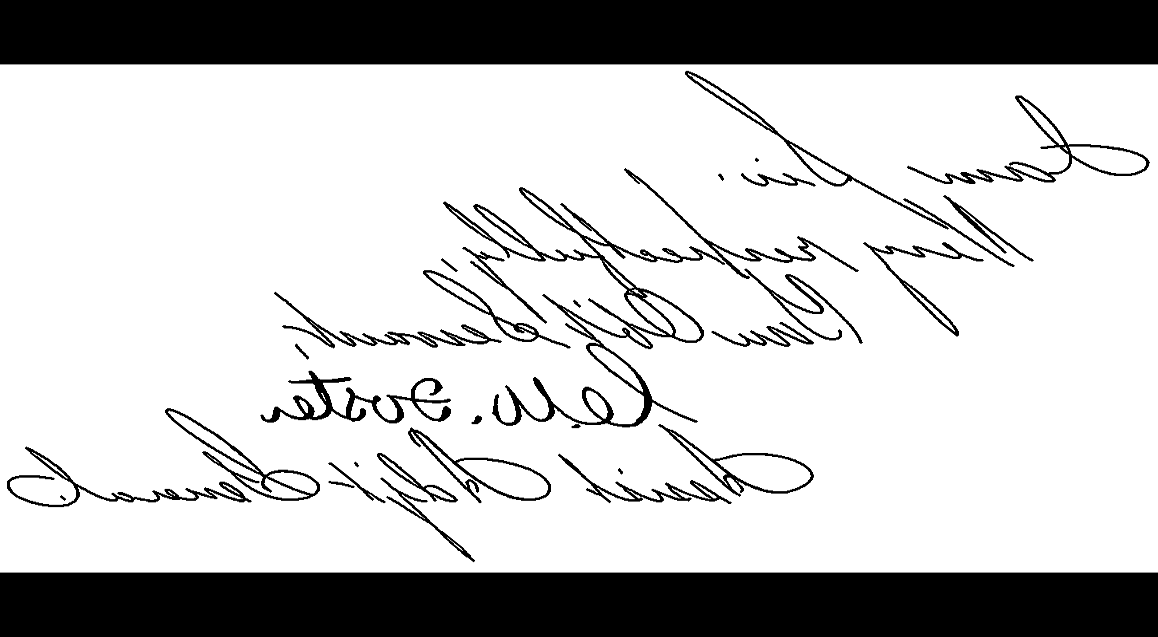 I am Sir.
Very respectfully,
Your Ob't Servant,
C.W. Foster
Assist Adj't General.